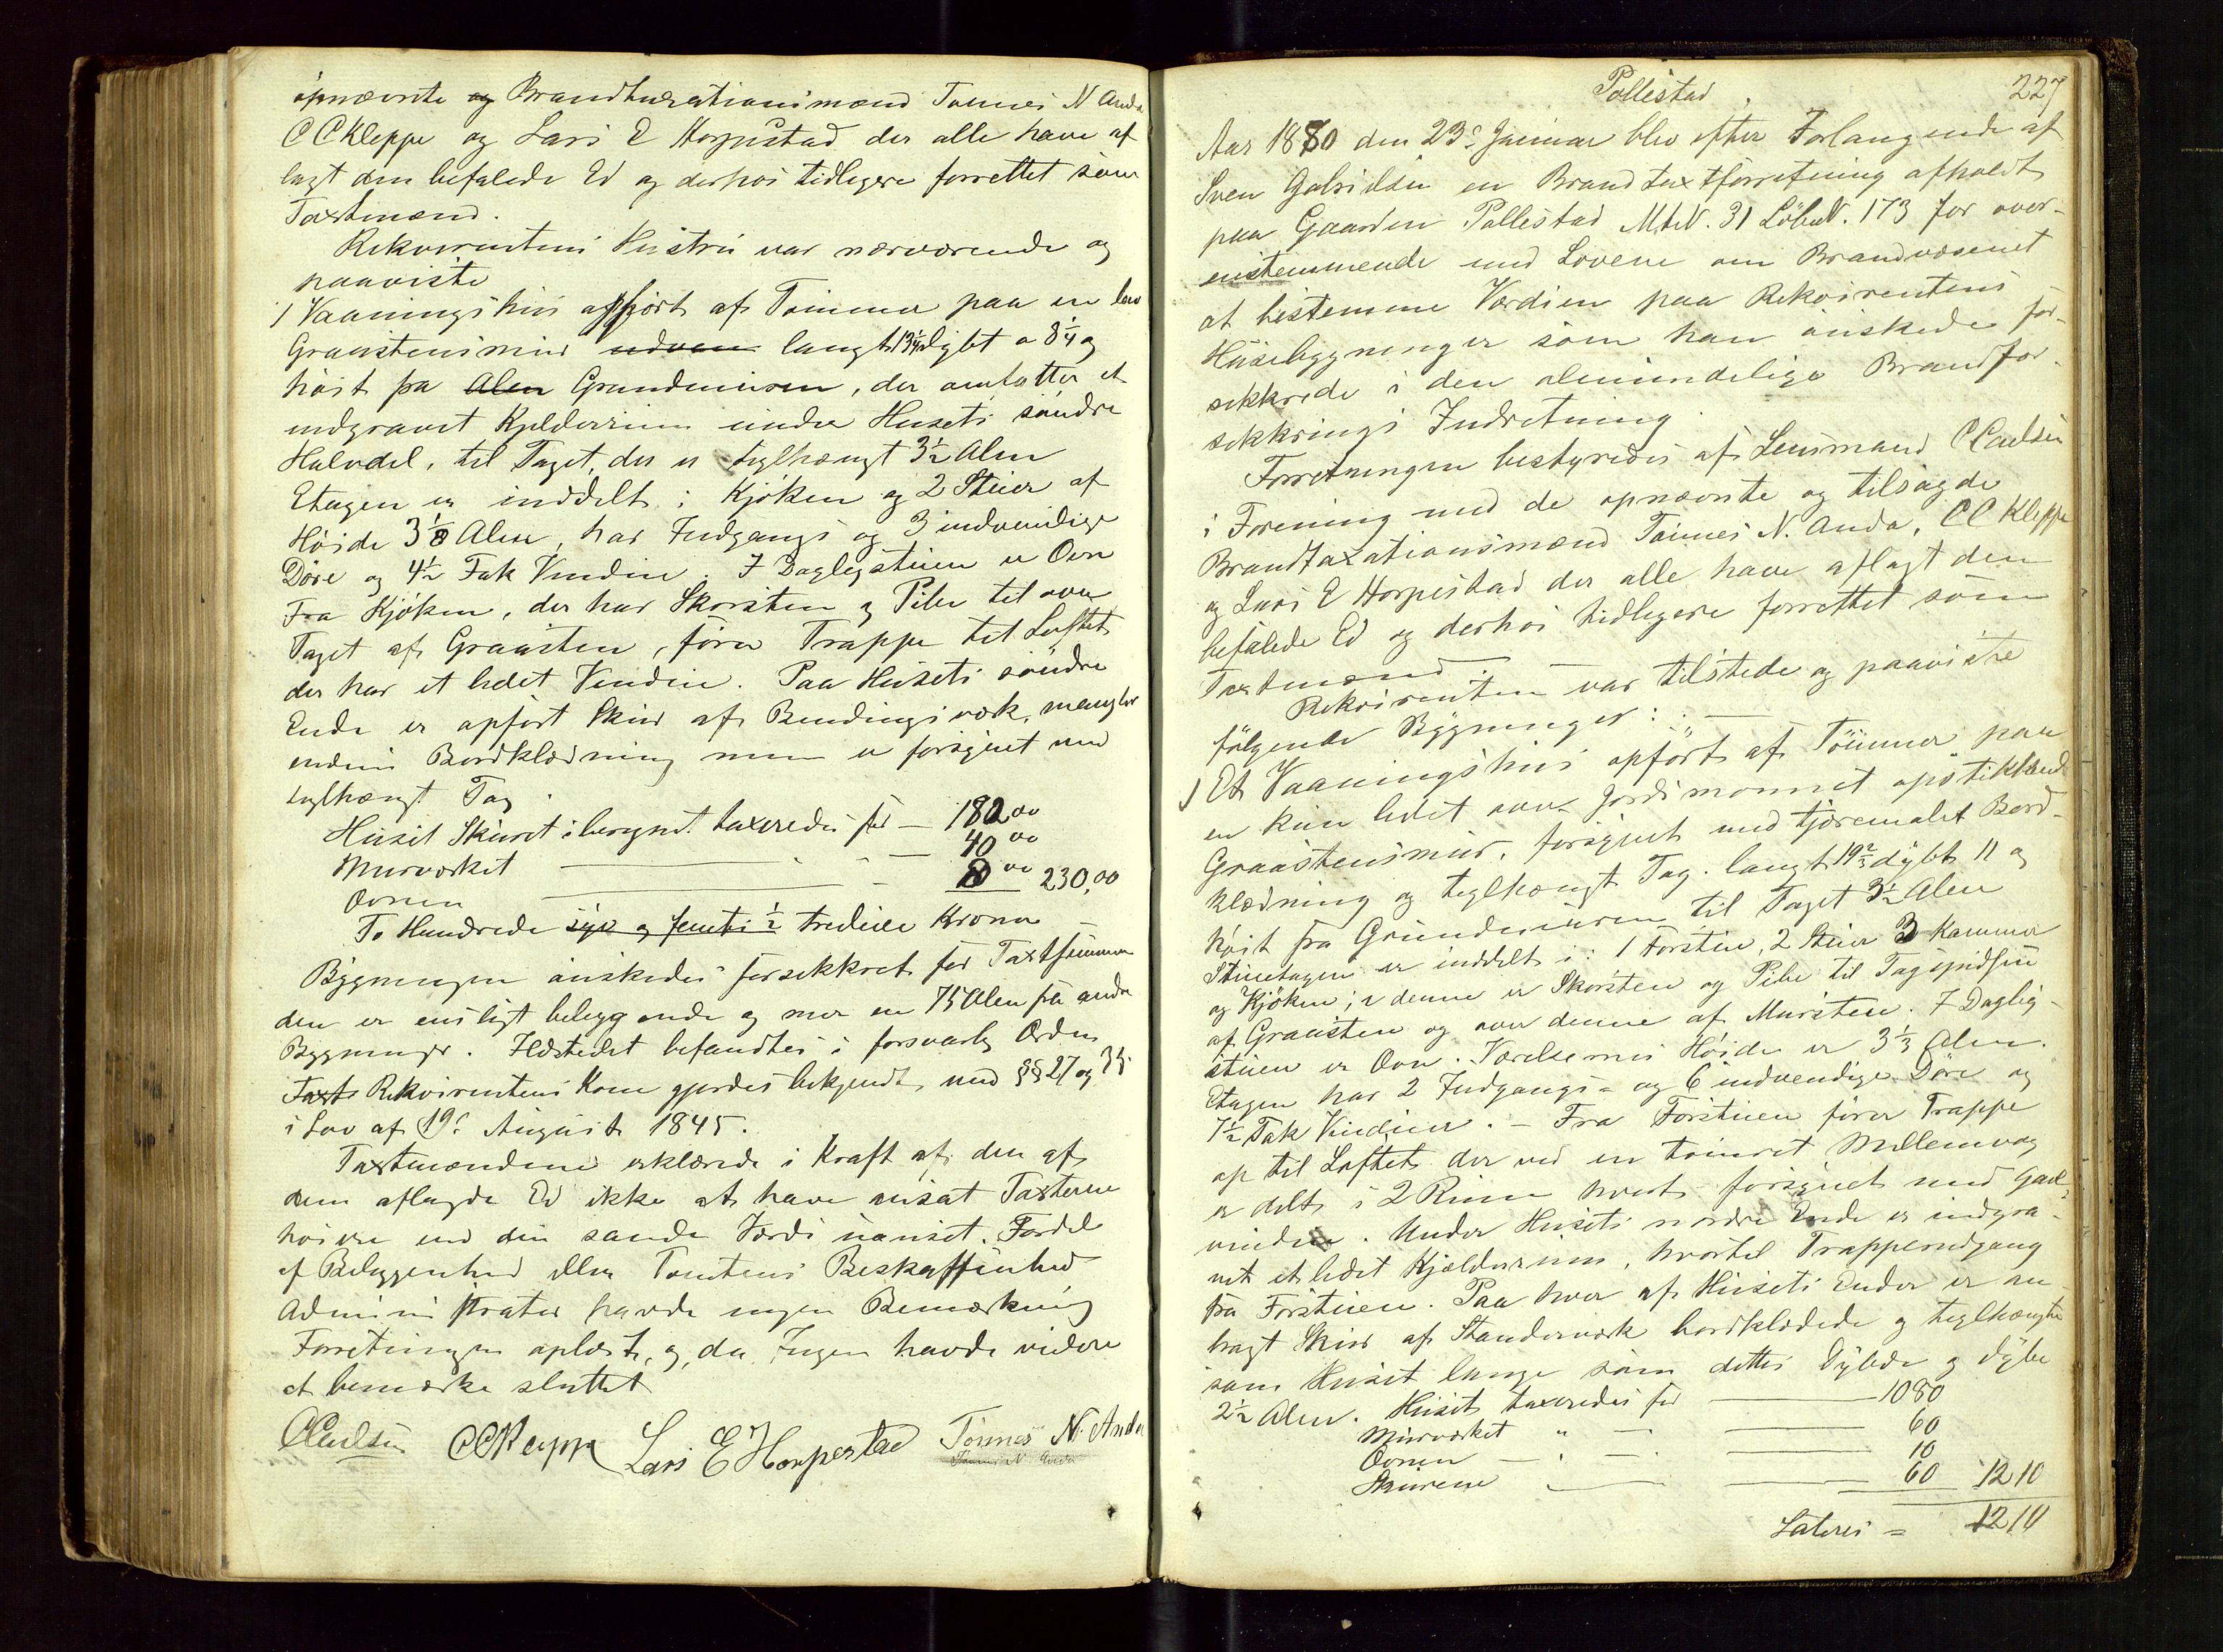 opnævnte og Brandtaxationsmænd Tønnes N Anda
C C Kleppe og Lars E Horpestad der alle have af
lagt den befalede Ed og derhos tidligere forrettet som
Taxtmænd.
Rekvirentens Hustru var nærværende og
paaviste
1 Vaaningshus opført af Tømmer paa en lav
Graastensmur udven langt 13¼ dybt a 8¼ og
høit fra Alen Grundmuren, der omfatter et
indgravet Kjelderrum under Husets søndre
Halvdel, til Taget, der er teglhængt 3½ Alen
Etagen er inddelt i Kjøken og 2 Stuer af
Høide 3⅛ Alen, har Indgangs og 3 indvendige
Døre og 4½ Fak Vinduer. I Dagligstuen er Ovn
Fra Kjøken, der har Skorsten og Pibe til over
Taget af Graasten, fører Trappe til Loftet
der har et lidet Vindue. Paa Husets søndre
Ende er opført Skur af Bindingsværk, mangler
endnu Bordklædning men er forsynet med
teglhængt Tag.
Huset Skuret iberegnet taxeredes for — 182 00
Murværket — " — 40 00
Ovnen — 8 00 230,00
To Hundrede syv og femti ½ tredive Kroner
Bygningen ønskedes forsekkret for Taxtsummen
den er ensligt beleggende og mer en 75 Alen fra andre
Bygninger. Ildstedet befandtes i forsvarlig Orden
Taxt Rekvirentens Kone gjordes bekjendt med §§ 27 og 35
i Lov af 19de August 1845.
Taxtmændene erklærede i Kraft af den af
dem aflagde Ed ikke at have ansat Taxterne
høiere end den sande Værdi uanset Fordel
af Beliggenhed eller Tomtens Beskaffenhed
Administrator havde ingen Bemærkning
Forretningen oplæst, og, da Ingen havde videre
at bemærke sluttet
C Carlsen CCKleppe Lars E Horpestad Tönnes N. Anda
Tønnes N Anda
Pollestad. 227
Aar 1880 den 23de Januar blev efter Forlangende af
Sven Gabrielsen en Brandtaxtforretning afholdt
paa Gaarden Pollestad M.N. 31 LøbeN. 173 for over-
ensstemmende med Lovene om Brandvæsenet
at bestemme Værdien paa Rekvirentens
Husebygninger som han ønskede for-
sekkrede i den almindelige Brandfor-
sekkrings Indretning.
Forretningen bestyredes af Lensmand C Carlsen
i Forening med de opnævnte og tilsagde
Brandtaxationsmænd Tønnes N. Anda, C C Kleppe
og Lars E Horpestad der alle have aflagt den
befalede Ed og derhos tidligere forrettet som
Taxtmænd.
Rekvirenten var tilstede og paaviste
følgende Bygninger:
1 Et Vaaningshus opført af Tømmer paa
en kun lidet over Jordsmonnet opstikkende
Graastensmur, forsynet med tjæremalet Bord-
klædning og teglhængt Tag. langt 19⅔ dybt 11 og
høit fra Grundmuren til Taget 3½ Alen
Stuetagen er inddelt i: 1 Forstue, 2 Stuer 3 Kammer
og Kjøken; i denne er Skorsten og Pibe til Tagspidsen
af Graasten og over denne af Mursten. I Daglig-
stuen er Ovn. Værelsernes Høide er 3⅓ Alen.
Etagen har 2 Indgangs- og 6 indvendige Døre og
7½ Fak Vinduer. — Fra Forstuen fører Trappe
op til Loftet der ved en tømret Mellemvæg
er delt i 2 Rum hvert forsynet med Gavl-
vindue. Under Husets nordre Ende er indgra-
vet et lidet Kjælderrum, hvortil Trappenedgang
fra Forstuen. Paa hver af Husets Ender er an-
bragt Skur af Standerværk bordklædede og teglhængte
som Huset lange som dettes Dybde og dybe
2½ Alen. Huset taxeredes for — 1080
Murværket " — 60
Ovnen — " — 10
Skurene — 60 1210
Lateris = 1210